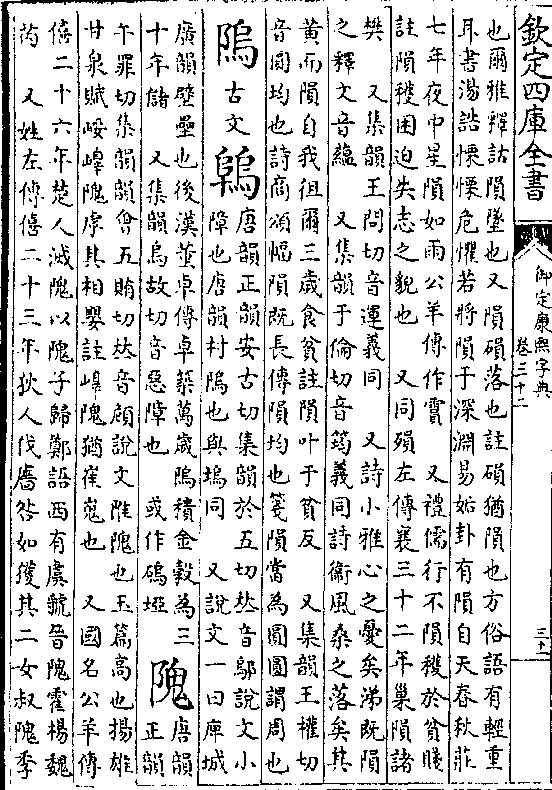 欽定四庫全書
御定康熙字典
卷三十二
三十一
也爾雅釋詁隕墜也又隕磒落也註磒猶隕也方俗語有輕重
耳書湯誥慄慄危懼若將隕于深淵易姤卦有隕自天春秋莊
七年夜中星隕如雨公羊傳作霣　又禮儒行不隕穫於貧賤
註隕穫困迫失志之貌也　又同殞左傳襄三十二年巢隕諸
樊　又集韻王問切音運義同　又詩小雅心之憂矣涕既隕
之釋文音蘊　又集韻于倫切音筠義同詩衞風桑之落矣其
黃而隕自我徂爾三歲食貧註隕叶于貧反　又集韻王權切
音圓均也詩商頌幅隕既長傳隕均也箋隕當為圓圓謂周也
隖古文䧚唐韻正韻安古切集韻於五切𠀤音鄔說文小
障也唐韻村隖也與塢同　又說文一曰庳城
廣韻壁壘也後漢董卓傳卓築萬歲隖積金穀為三
十年儲　又集韻烏故切音惡障也　或作碼埡
隗唐韻正韻
午罪切集韻韻會五賄切𠀤音頠說文陮隗也玉篇高也揚雄
甘泉賦崚嶵隗虖其相嬰註嶵隗猶崔嵬也　又國名公羊傳
僖二十六年楚人滅隗以隗子歸鄭語西有虞虢晉隗霍楊魏
芮　又姓左傳僖二十三年狄人伐廧咎如獲其二女叔隗季